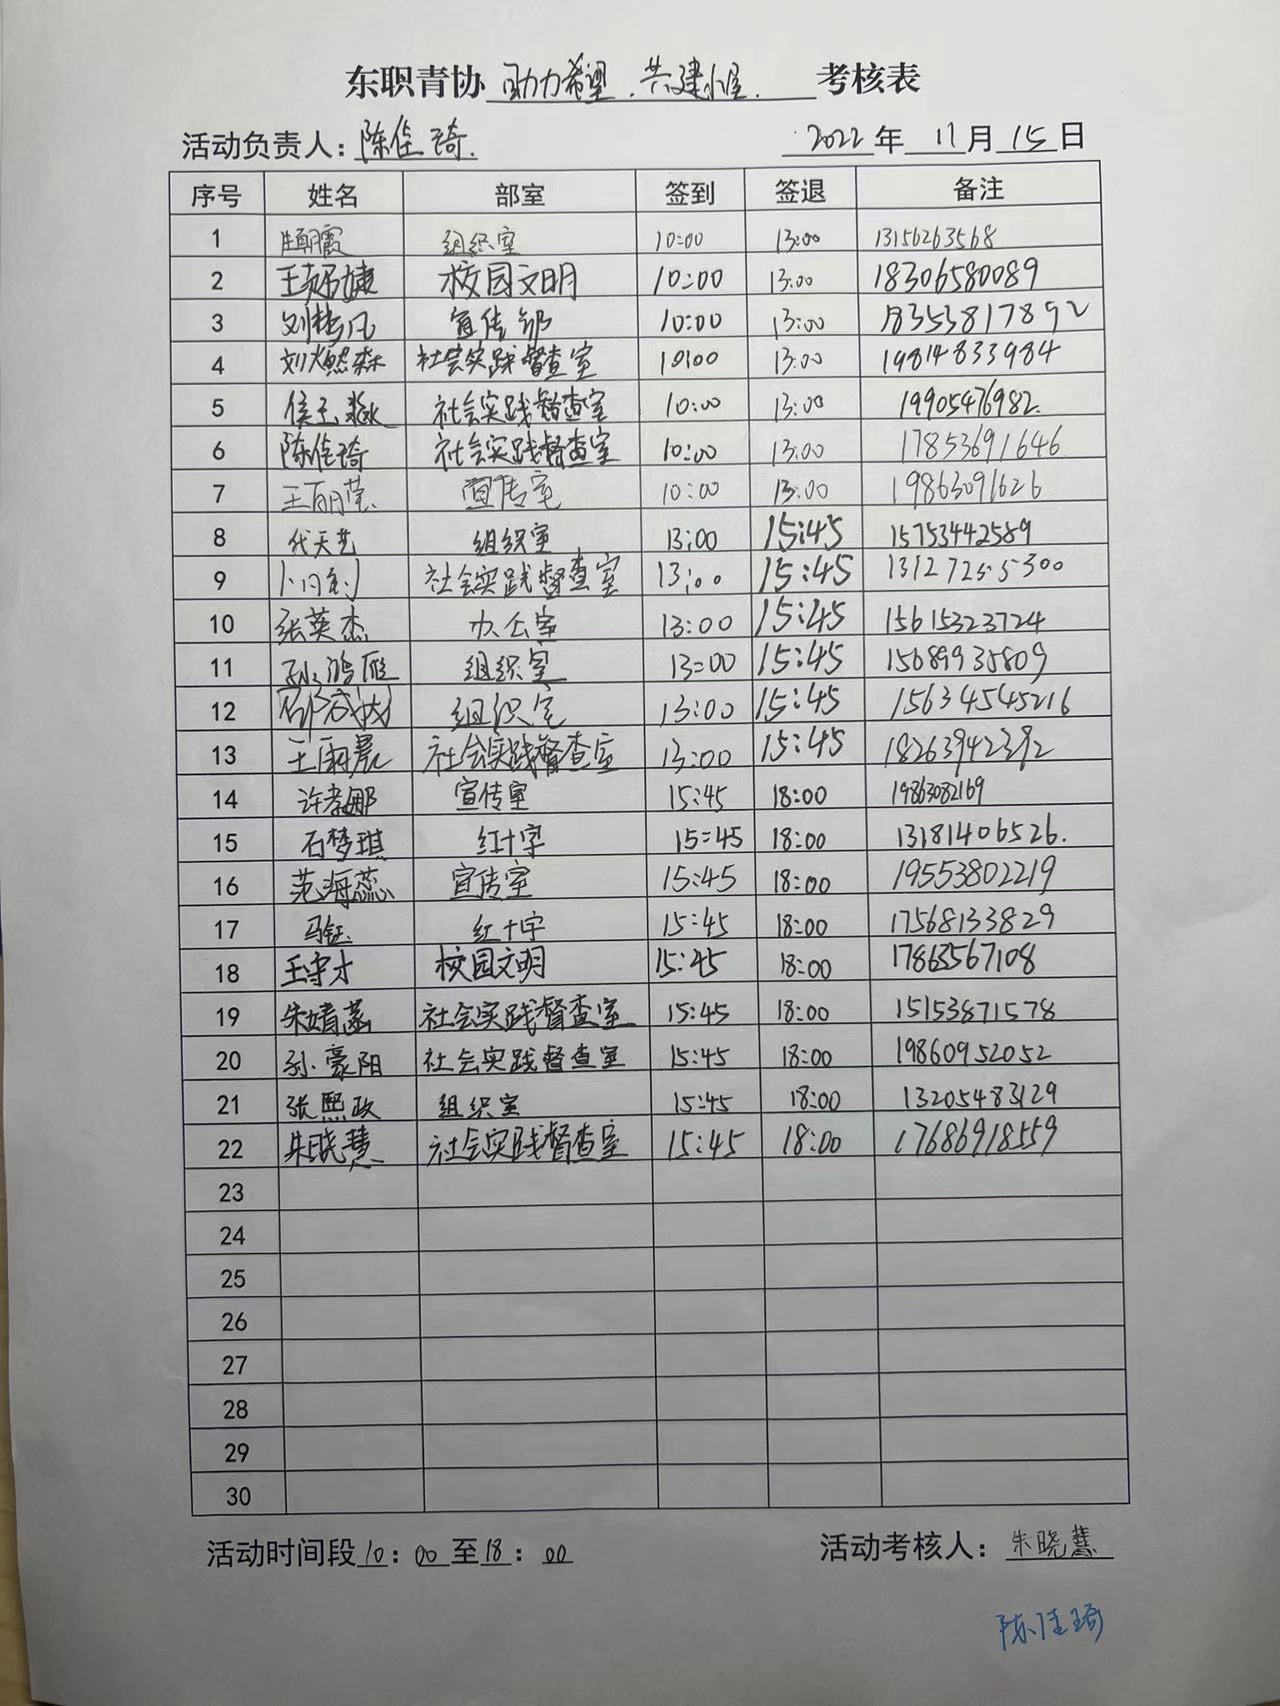 东职青协 助力希望.共建 考核表
活动负责人：陈佳琦. 2022年 11月 15日
序号 姓名 部室 签到 签退 备注
1 组织室 10:00 13:00 13156263568
2 校园文明 10:00 13:00 18306580089
3 宣传部 10:00 13:00 18353817892
4 刘燃森 社会实践督查室 10:00 13:00 19814833984
5 侯玉淼 社会实践督查室 10:00 13:00 19905476982.
6 陈佳琦 社会实践督查室 10:00 13:00 17853691646
7 王丽莹 宣传室 10:00 13:00 19863091626
8 代天艺 组织室 13:00 15:45 15753442589
9 社会实践督查室 13:00 15:45 13127255300
10 张英杰 办公室 13:00 15:45 15615323724
11 孙鸿雁 组织室 13:00 15:45 15689935809
12 组织室 13:00 15:45 15634545216
13 社会实践督查室 13:00 15:45 18263942392
14 许孝娜 宣传室 15:45 18:00 19863082169
15 石梦琪 红十字 15:45 18:00 13181406526.
16 范海蕊 宣传室 15:45 18:00 19553802219
17 马钰 红十字 15:45 18:00 17568133829
18 王守才 校园文明 15:45 18:00 17863567108
19 社会实践督查室 15:45 18:00 15153871578
20 孙豪阳 社会实践督查室 15:45 18:00 19860952052
21 张熙政 组织室 15:45 18:00 13205483129
22 朱晓慧 社会实践督查室 15:45 18:00 17686918559
23
24
25
26
27
28
29
30
活动时间段 10：00 至 18：00 活动考核人：朱晓慧
陈佳琦